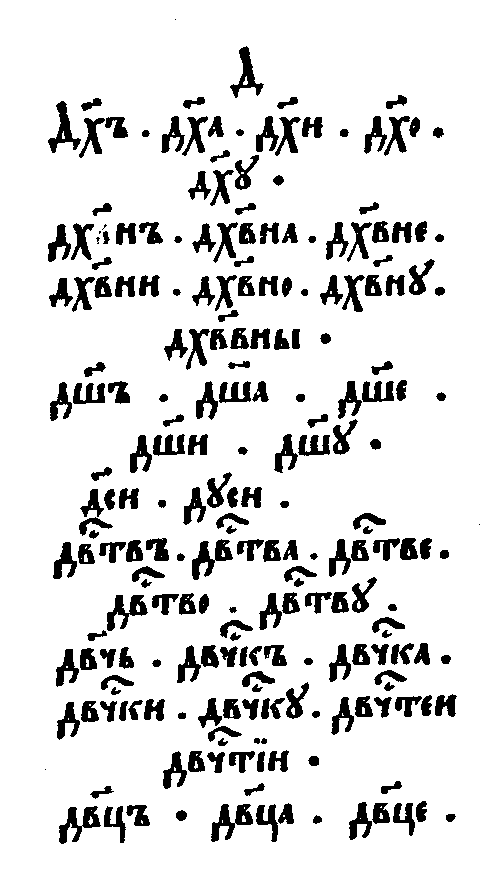 Д
Дх҃ъ . дх҃а . дх҃и . дх҃о .
дх҃ꙋ .
дхв҃нъ . дхв҃на . дхв҃не .
дхв҃ни . дхв҃но . дхв҃нꙋ .
дхв҃вны .
дш҃ъ . дш҃а . дш҃е .
дш҃и . дш҃ꙋ .
д҃еи . дꙋеи .
двⷭ҇твъ . двⷭ҇тва . двⷭ҇тве .
двⷭ҇тво . двⷭ҇твꙋ .
дв҃чь . двчⷭ҇къ . двчⷭ҇ка .
двчⷭ҇ки . двчⷭ҇кꙋ . двчⷭ҇теи
двчⷭ҇тїи .
дв҃цъ . дв҃ца . дв҃це .